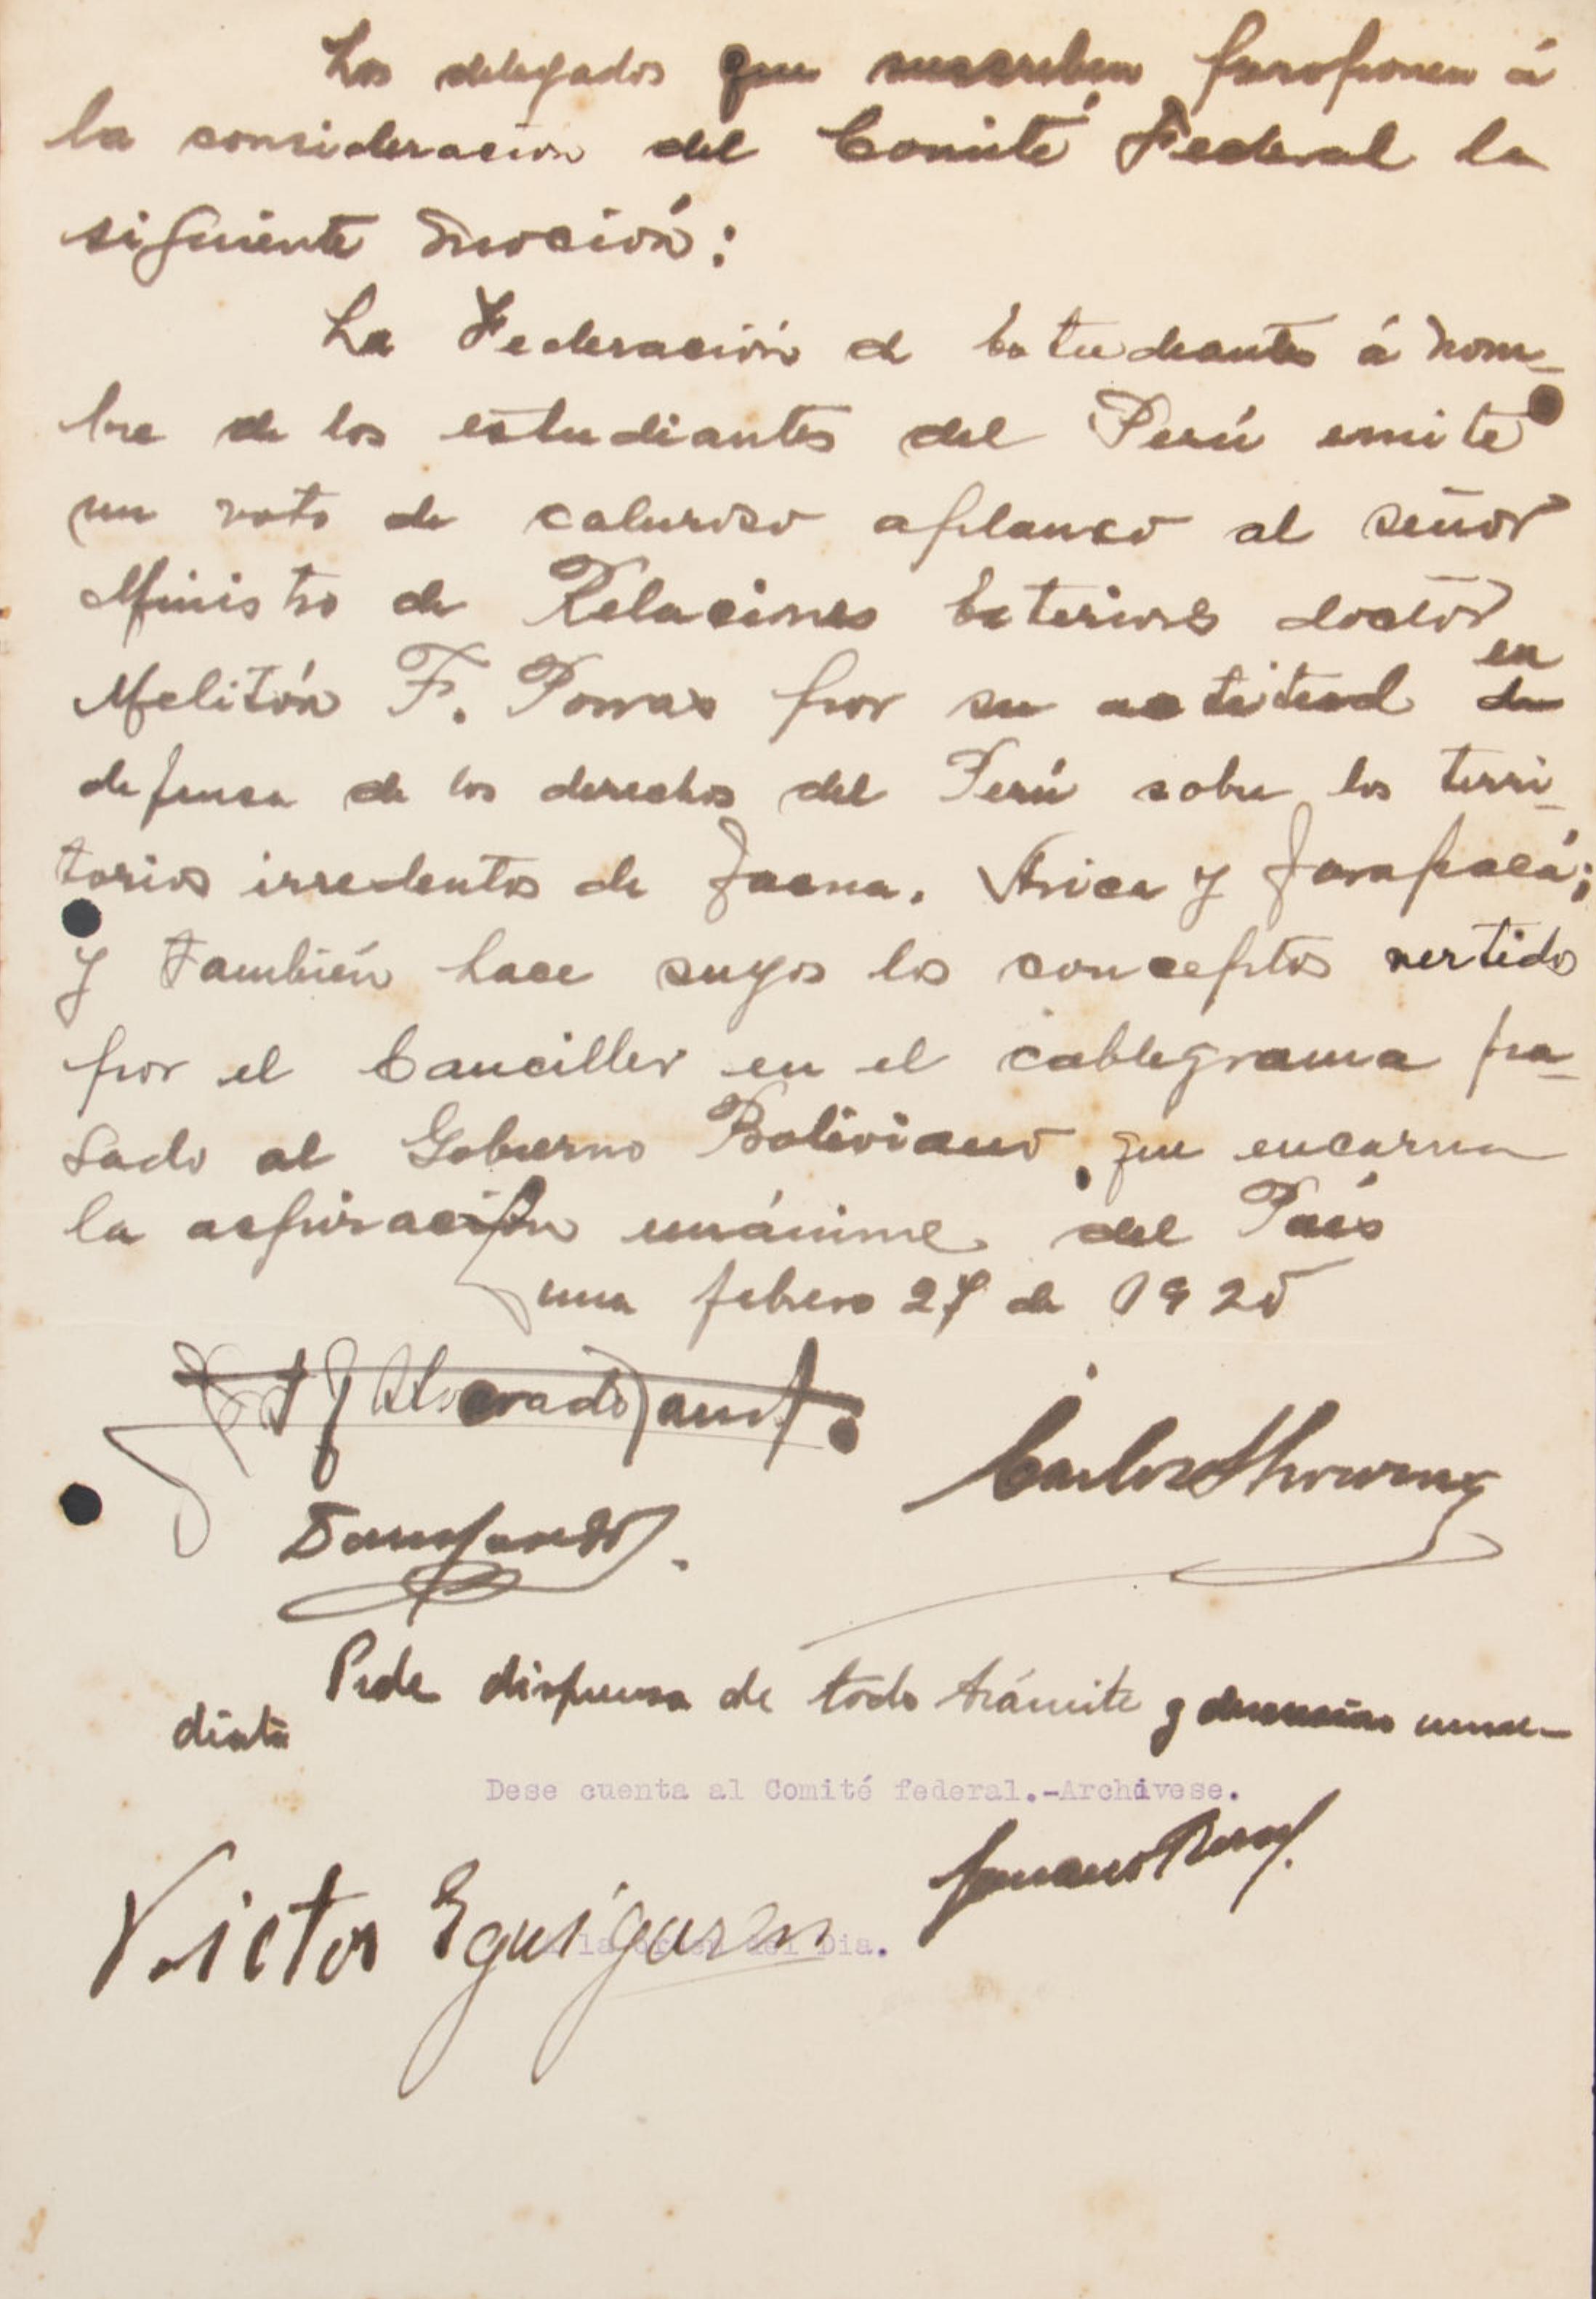 Los delegados que suscriben proponen á
la consideracion del Comité Federal la
siguiente moción:
La Federación de Estudiantes á nom-
bre de los estudiantes del Perú emite
un voto de caluroso aplauso al señor
Ministro de Relaciones Exteriores doctor
Melitón F. Porras por su actitud en
defensa de los derechos del Perú sobre los terri-
torios irredentos de Tacna, Arica y Tarapacá;
y también hace suyos los conceptos vertidos
por el Canciller en el cablegrama pa-
sado al Gobierno Boliviano, que encarna
la aspiración unánime del País
Lima febrero 27 de 1920
Alvarado
Carlos
Pide dispensa de todo trámite y inme-
diata
Dese cuenta al Comité federal.-Archivese.
Victor Eguiguren
la orden del Dia.